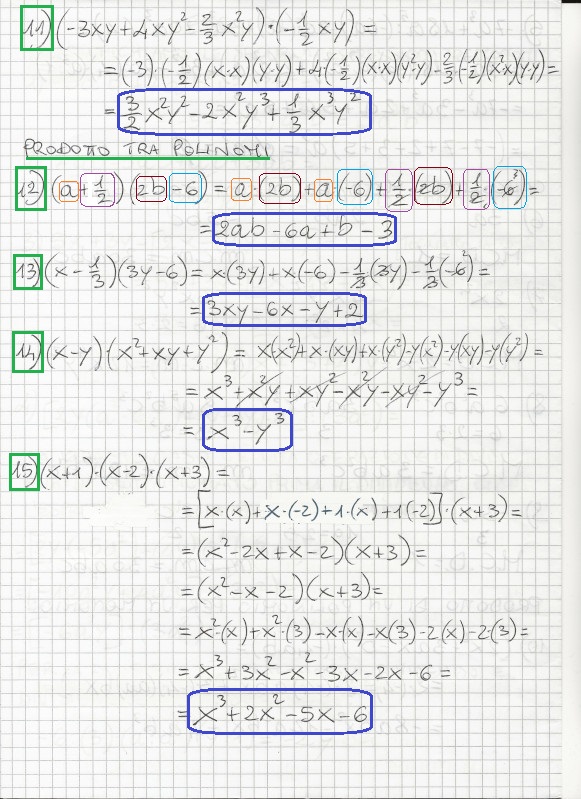 11) (-3xy+4xy²-2/3x²y)·(-1/2xy)=
=(-3)·(-1/2)(x·x)(y·y)+4·(-1/2)(x·x)(y²·y)-2/3·(-1/2)(x²·x)(y·y)=
=3/2x²y²-2x²y³+1/3x³y²
PRODOTTO TRA POLINOMI
12) (a+1/2)(2b-6)=a·(2b)+a(-6)+1/2·(2b)+1/2·(-6³)=
=2ab-6a+b-3
13) (x-1/3)(3y-6)=x·(3y)-x(-6)-1/3(3y)-1/3(-6²)=
=3xy-6x-y+2
14) (x-y)·(x²+xy+y²)=x·(x²)+x·(xy)+x·(y²)-y(x²)-y(xy)-y(y²)=
=x³+x²y+xy²-x²y-xy²-y³=
=x³-y³
15) (x+1)·(x-2)·(x+3)=
=[x·(x)+x·(-2)+1·(x)+1(-2)]·(x+3)=
=(x²-2x+x-2)(x+3)=
=(x²-x-2)(x+3)=
=x²·(x)+x²·(3)-x·(x)-x(3)-2(x)-2·(3)=
=x³+3x²-x²-3x-2x-6=
=x³+2x²-5x-6